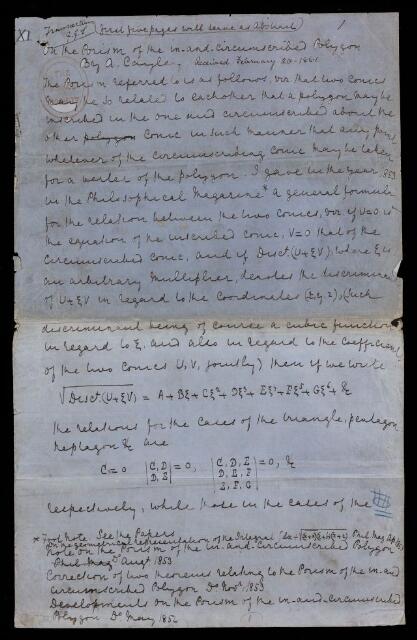 XI
Transaction (first five pages will serve as Abstract) 1
On the Porism of the in-and-circumscribed Polygon
By A. Cayley. Received February 20. 1861
The Porism referred to is as follows, viz that two conics
may be so related to each other that a polygon may be
inscribed in the one and circumscribed about the
other polygon Conic in such manner that any point
whatever of the circumscribing Conic may be taken
for a vertex of the polygon. I gave in the year 1853
in the Philosophical Magazine* a general formula
for the relation between the two conics, viz if U=0 is
the equation of the inscribed Conic, V=0 that of the
circumscribed Conic, and if Disct. (U+ξV), where ξ is
an arbitrary multiplier, denotes the discriminant
of U+ξV in regard to the coordinates (x,y,z), (such
discriminant being of course a cubic function
in regard to ξ, and also in regard to the coefficients
of the two Conics U, V, jointly) then if we write
√Disct.(U+ξV) = A+Bξ+Cξ²+Dξ³+Eξ⁴+Fξ⁵+Gξ⁶+ &c
the relations for the cases of the triangle, pentagon
heptagon &c are
C=0 |C, D| =0, |C, D, E| =0, &c
|D, E| |D, E, F|
|E, F, G|
respectively, while those in the cases of the
* Foot Note See the Papers
On the geometrical representation of the Integral Phil. Mag. Ap. 1853
Note on the Porism of the in-and-circumscribed Polygon
Phil. Mag. Augt 1853
Correction of two theorems relating to the Porism of the in-and
circumscribed Polygon Do Novr. 1853
Developments on the Porism of the in-and-circumscribed
Polygon Do May 1854